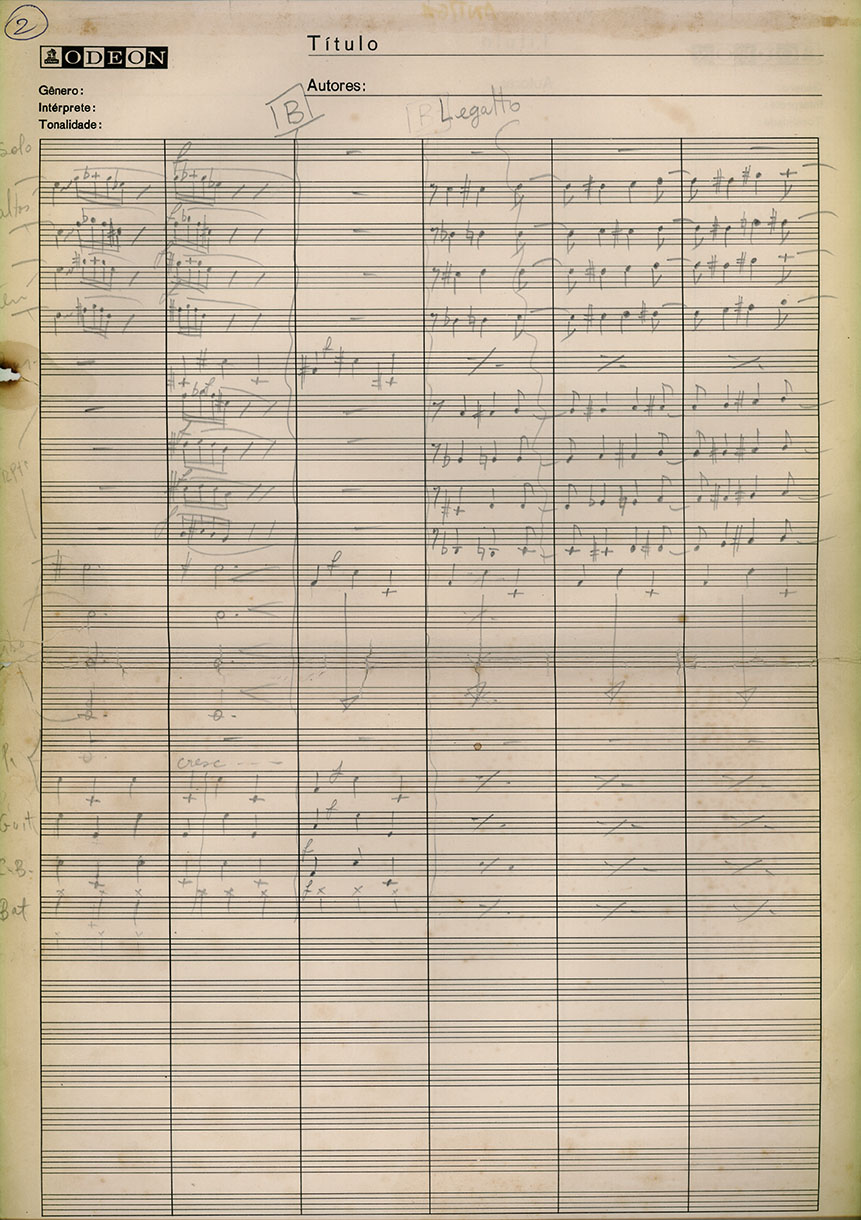 2
ODEON
Título
Autores:
Gênero:
Intérprete:
Tonalidade:
B
B Legatto
Solo
f
f
f
cresc ----
f
Guit
f
C.B.
f
Bat
f